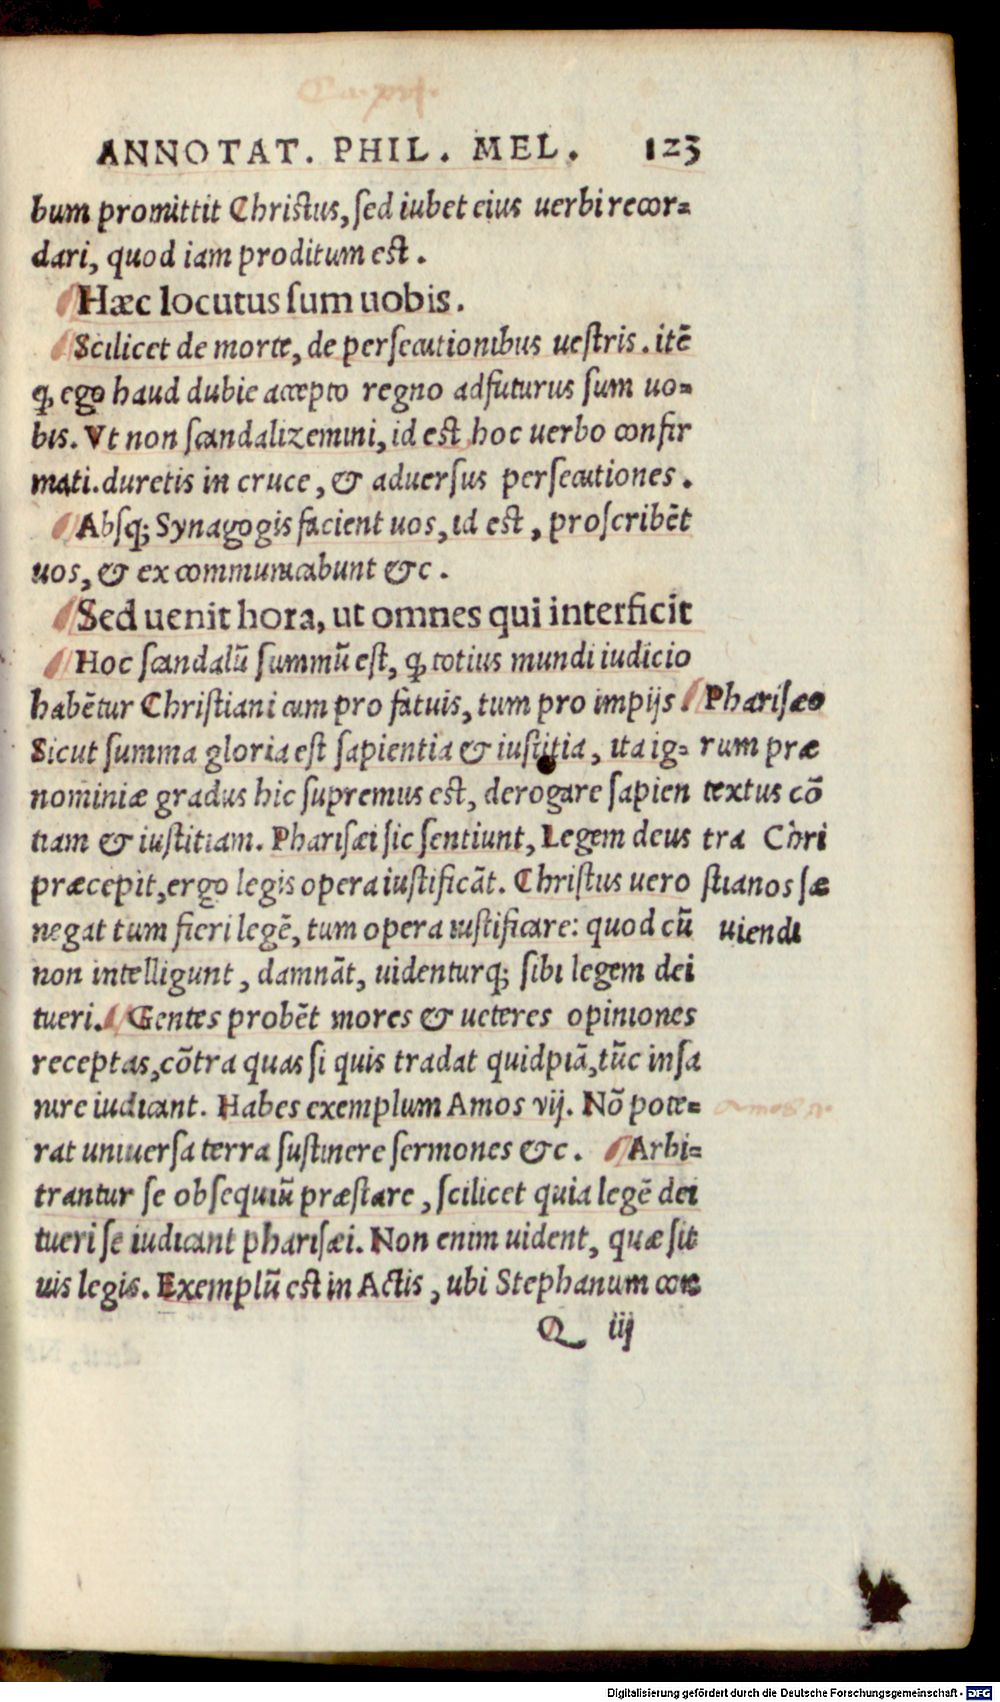 Ca. xvj.
ANNOTAT. PHIL. MEL. 123
bum promittit Christus, sed iubet eius uerbi recor=
dari, quod iam proditum est.
Hæc locutus sum uobis.
Scilicet de morte, de persecutionibus uestris. itē
ꝙ ego haud dubie accepto regno adfuturus sum uo=
bis. Vt non scandalizemini, id est hoc uerbo confir
mati. duretis in cruce, & aduersus persecutiones.
Absq; Synagogis facient uos, id est, proscribēt
uos, & excommunicabunt &c.
Sed uenit hora, ut omnes qui interficit
Hoc scandalū summū est, ꝙ totius mundi iudicio
habētur Christiani cum pro fatuis, tum pro impijs.
Sicut summa gloria est sapientia & iustitia, ita ig=
nominiæ gradus hic supremus est, derogare sapien
tiam & iustitiam. Pharisæi sic sentiunt, Legem deus
præcepit, ergo legis opera iustificāt. Christus uero
negat tum fieri legē, tum opera iustificare: quod cū
non intelligunt, damnāt, uidenturq; sibi legem dei
tueri. Gentes probēt mores & ueteres opiniones
receptas, cōtra quas si quis tradat quidpiā, tūc insa
nire iudicant. Habes exemplum Amos vij. Nō pote=
rat uniuersa terra sustinere sermones &c. Arbi=
trantur se obsequiū præstare, scilicet quia legē dei
tueri se iudicant pharisæi. Non enim uident, quæ sit
uis legis. Exemplū est in Actis, ubi Stephanum con
Q iij
Pharisæo
rum præ
textus cō
tra Chri
stianos sæ
uiendi
Amos
Digitalisierung gefördert durch die Deutsche Forschungsgemeinschaft - DFG